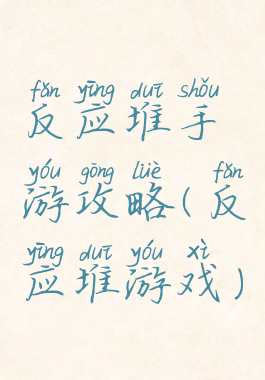 fǎn yīng duī shǒu
反应堆手
yóu gōng lüè fǎn
游攻略(反
yīng duī yóu xì
应堆游戏)